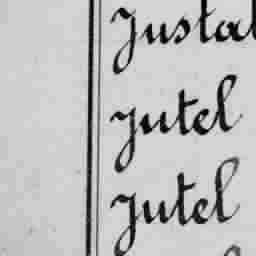 Justal
Jutel
Jutel